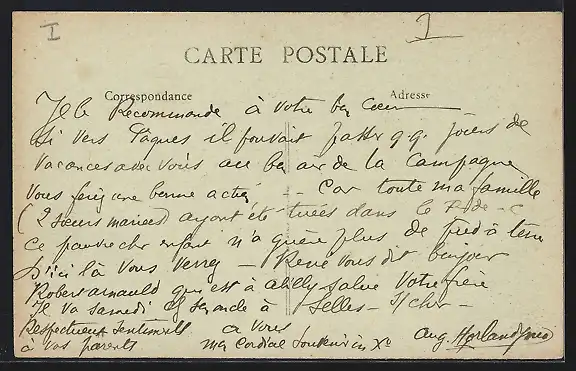 I
I
CARTE POSTALE
Correspondance
Adresse
Je le Recommande à votre bon Cœur
Si vers Pâques il pouvait passer q.q. jours de
vacances avec vous au bon air de la Campagne
vous feriez une bonne action - Car toute ma famille
(2 sœurs mariées) ayant été tuées dans le
Ce pauvre cher enfant n'a guère plus de pied à terre
D'ici là vous verrez — René vous dit bonjour
Robert arnauld qui est à salue Votre frère
Je va samedi à Selles-s/Cher -
Respectueux sentiments à vous
à vos parents ma Cordial Souvenir in Xº
Aug.